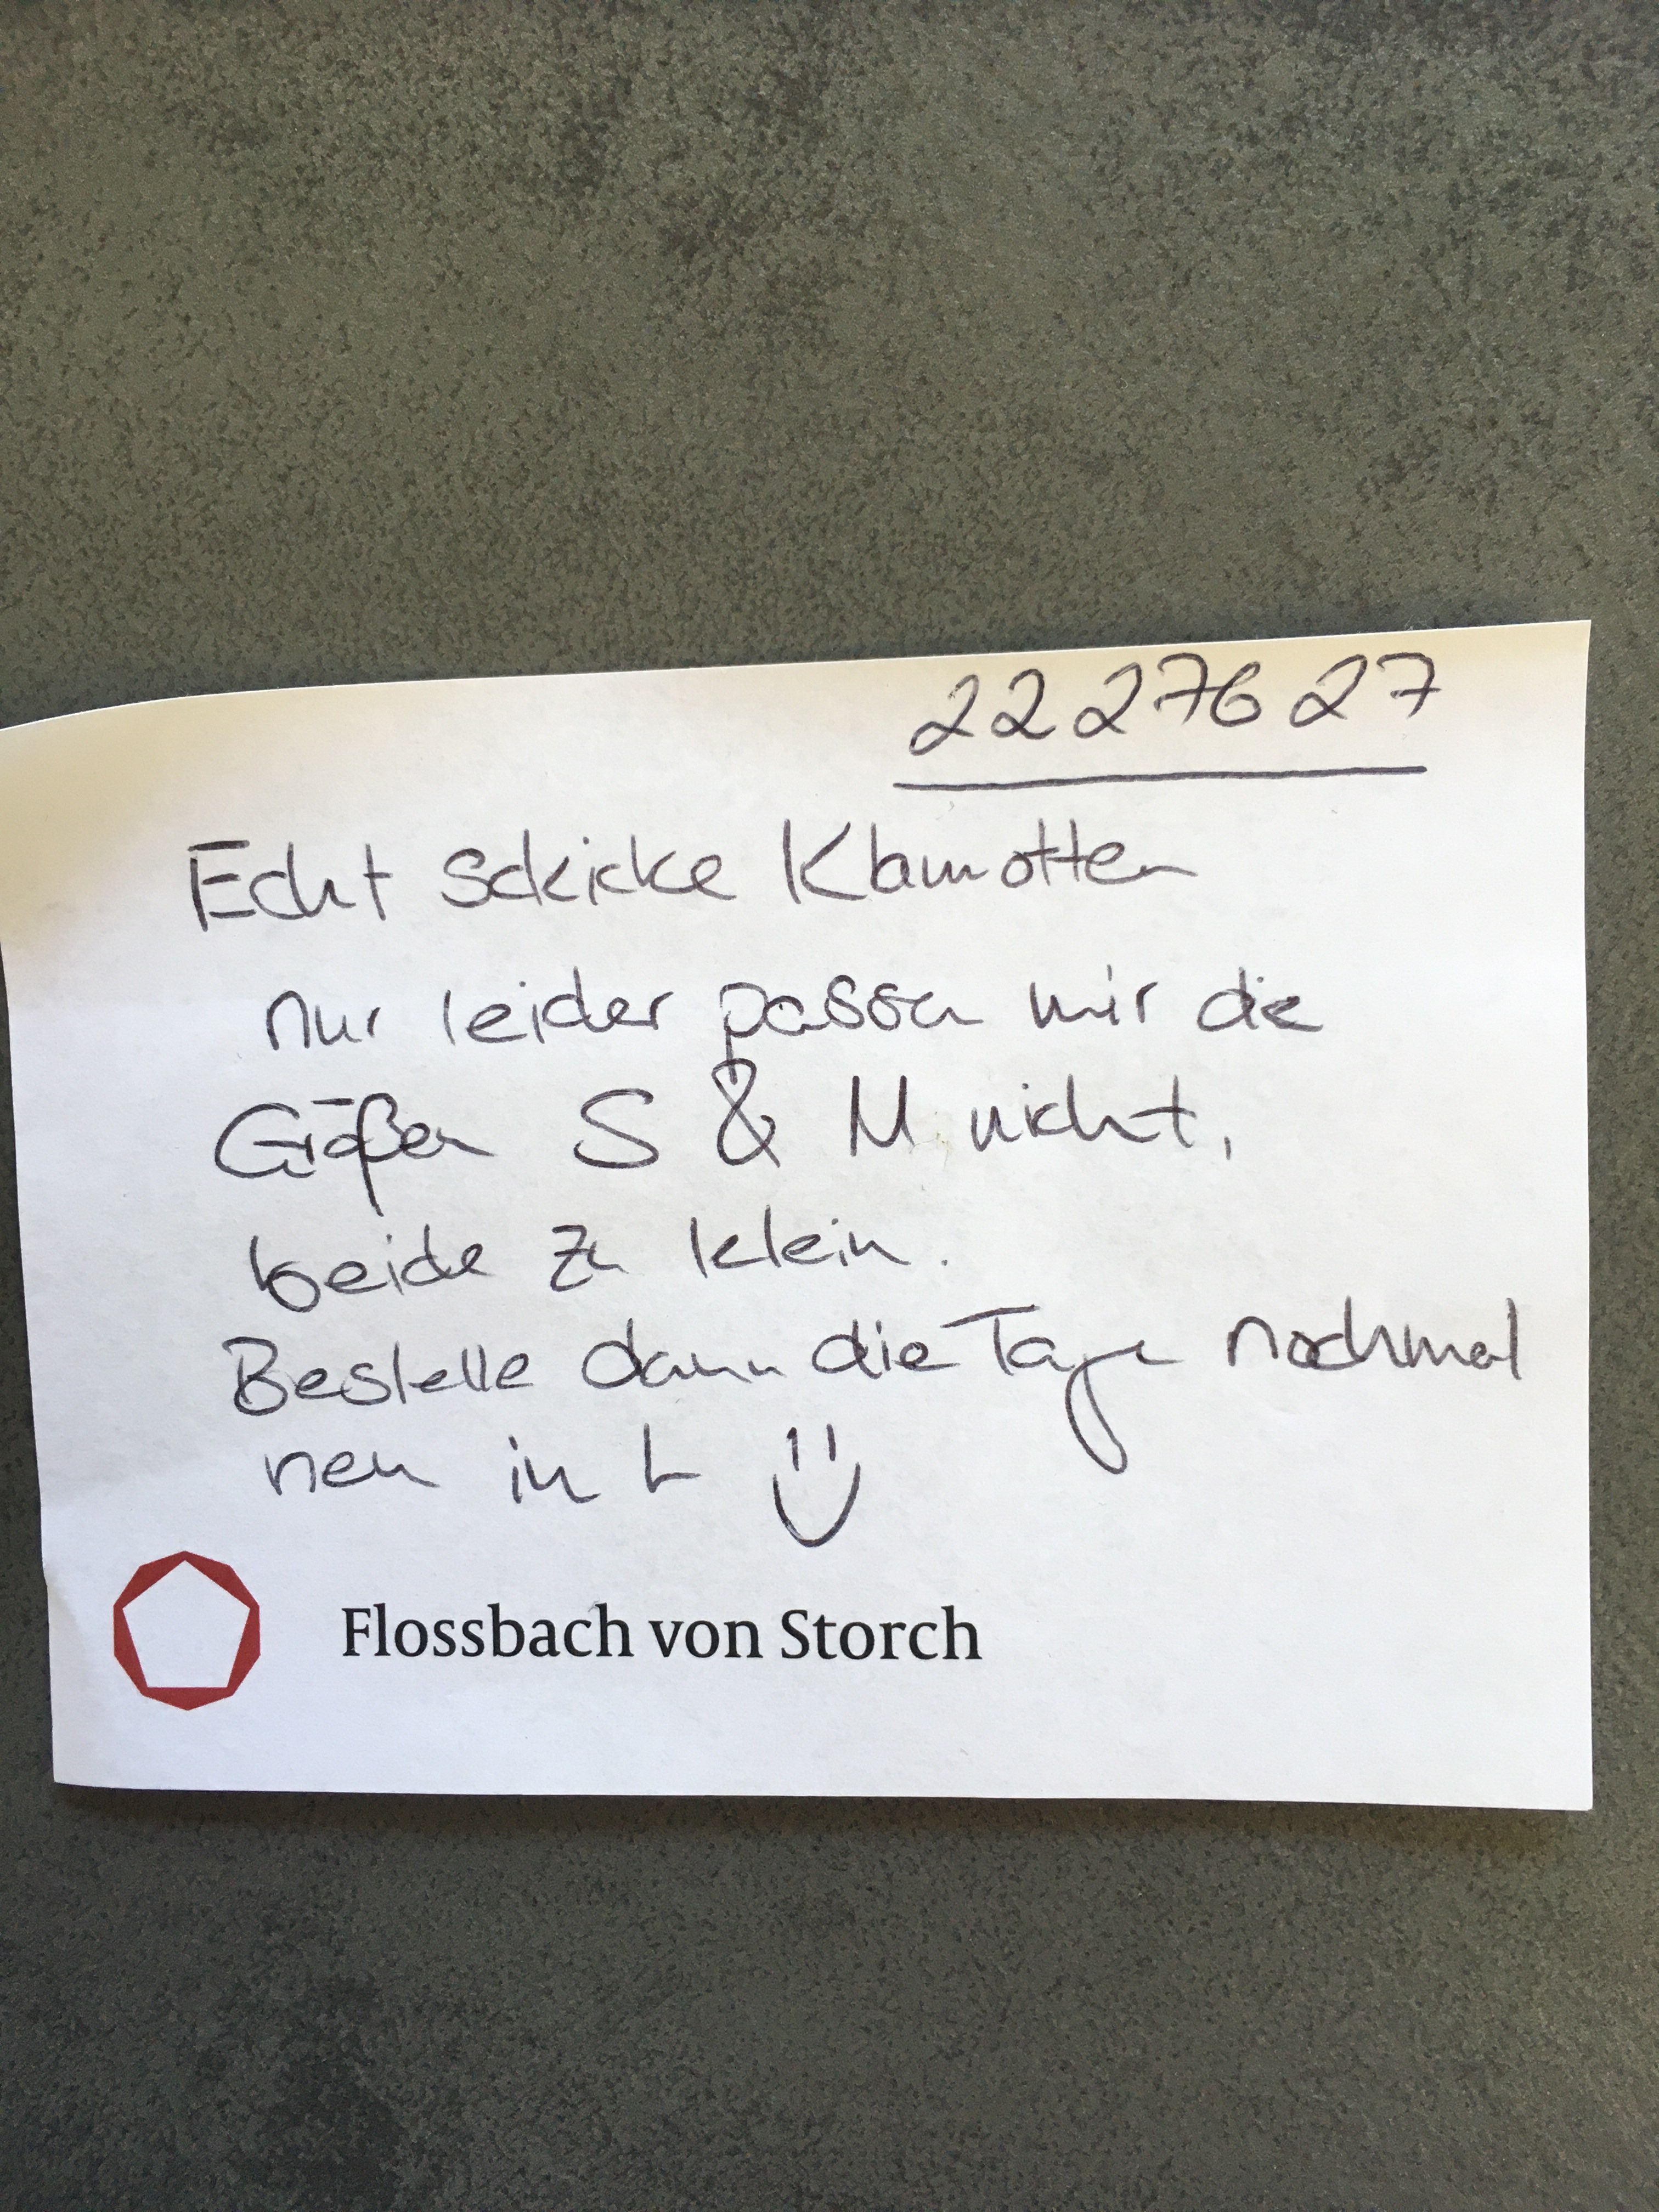 22 276 27
Echt schicke Klamotten
nur leider passen mir die
Größen S & M nicht,
beide zu klein.
Bestelle dann die Tage nochmal
neu in L
Flossbach von Storch